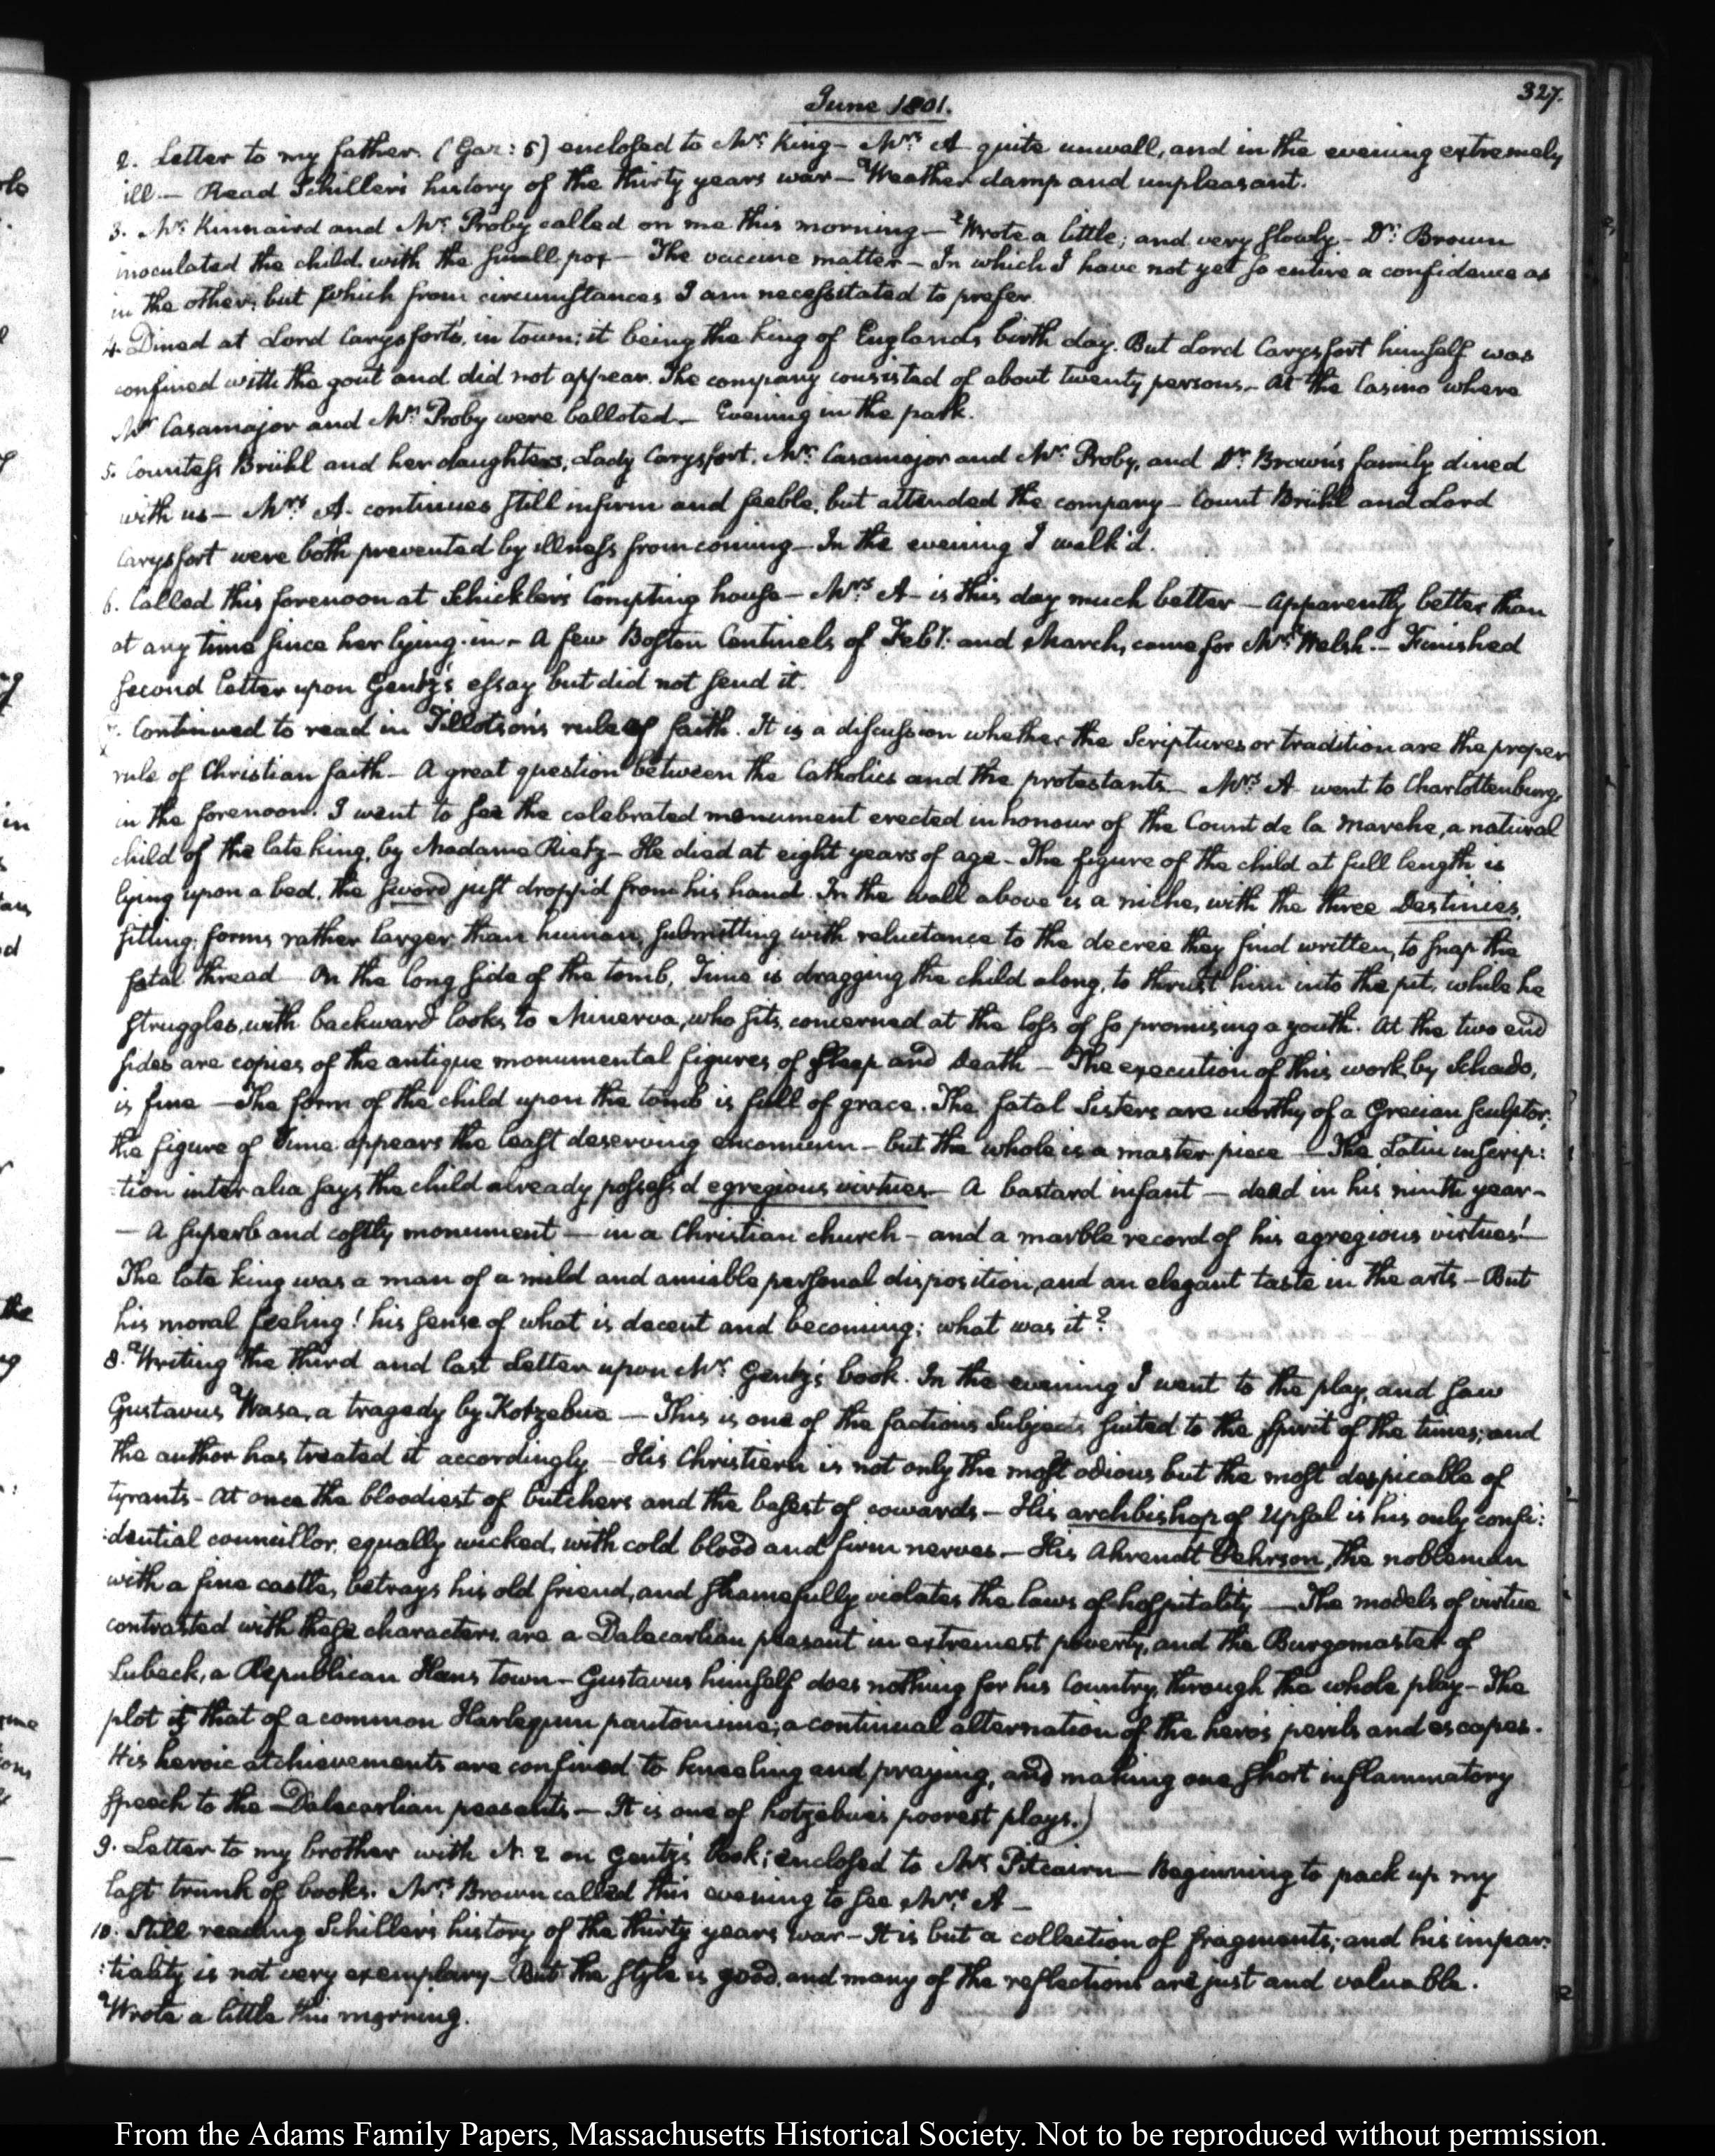 327.
June 1801.
2. Letter to my father. (Gaz: 5) enclosed to Mr. King — Mrs. A quite unwell, and in the evening extremely
ill. — Read Schiller's history of the thirty years war — Weather damp and unpleasant.
3. Mr. Kinnaird and Mr. Proby called on me this morning — Wrote a little; and very slowly — Dr. Brown
inoculated the child with the small pox — The vaccine matter — In which I have not yet so entire a confidence as
in the other; but which from circumstances I am necessitated to prefer.
4. Dined at Lord Carysfort's, in town; it being the king of England's birth day. But Lord Carysfort himself was
confined with the gout and did not appear. The company consisted of about twenty persons. — At the Casino where
Mr. Casamajor and Mr. Proby were balloted. — Evening in the park.
5. Countess Brühl and her daughters, Lady Carysfort, Mr. Casamajor and Mr. Proby, and Dr. Brown's family dined
with us — Mrs. A. continues still infirm and feeble, but attended the company — Count Brühl and Lord
Carysfort were both prevented by illness from coming — In the evening I walk'd.
6. Called this forenoon at Schickler's Compting house — Mrs. A — is this day much better — Apparently better than
at any time since her lying-in — A few Boston Centinels of Feby. and March, came for Mr. Welsh. — Finished
second letter upon Gentz's essay but did not send it.
7. Continued to read in Tillotson's rule of faith. It is a discussion whether the Scriptures or tradition are the proper
rule of Christian faith — A great question between the Catholics and the protestants — Mrs. A went to Charlottenburg,
in the forenoon. I went to see the celebrated monument erected in honour of the Count de la Marche, a natural
child of the late king, by Madame Rietz — He died at eight years of age — The figure of the child at full length is
lying upon a bed, the sword just dropp'd from his hand. In the wall above is a niche, with the three Destinies,
sitting; forms rather larger than human, submitting with reluctance to the decree they find written, to snap the
fatal thread. On the long side of the tomb, Time is dragging the child along, to thrust him into the pit, while he
struggles, with backward looks to Minerva, who sits, concerned at the loss of so promising a youth. At the two end
sides are copies of the antique monumental figures of Sleep and Death — The execution of this work, by Schado,
is fine — The form of the child upon the tomb is full of grace. The fatal Sisters are worthy of a Grecian sculptor;
the figure of Time appears the least deserving encomium — but the whole is a master piece — The Latin inscrip:
:tion inter alia says the child already possess'd egregious virtues — A bastard infant — dead in his ninth year —
— A superb and costly monument — in a Christian church — and a marble record of his egregious virtues! —
The late king was a man of a mild and amiable personal disposition, and an elegant taste in the arts — But
his moral feeling! his sense of what is decent and becoming; what was it?
8. Writing the third and last Letter upon Mr. Gentz's book. In the evening I went to the play, and saw
Gustavus Wasa, a tragedy by Kotzebue — This is one of the factious subjects suited to the spirit of the times; and
the author has treated it accordingly — His Christiern is not only the most odious but the most despicable of
tyrants — At once the bloodiest of butchers and the basest of cowards — His archbishop of Upsal is his only confi:
:dential councillor, equally wicked, with cold blood and firm nerves — His Ahrendt Pehrson, the nobleman
with a fine castle, betrays his old friend, and shamefully violates the laws of hospitality — The models of virtue
contrasted with these characters, are a Dalecarlian peasant in extremest poverty, and the Burgomaster of
Lubeck, a Republican Hans town — Gustavus himself does nothing for his Country, through the whole play — The
plot is that of a common Harlequin pantomime; a continual alternation of the hero's perils and escapes.
His heroic atchievements are confined to kneeling and praying, and making one short inflammatory
speech to the Dalecarlian peasants — It is one of Kotzebue's poorest plays.)
9. Letter to my brother with N. 2 on Gentz's book; enclosed to Mr. Pitcairn — Beginning to pack up my
last trunk of books. Mrs. Brown called this evening to see Mrs. A —
10. Still reading Schiller's history of the thirty years war — It is but a collection of fragments; and his impar:
:tiality is not very exemplary — But the style is good, and many of the reflections are just and valuable.
Wrote a little this morning.
From the Adams Family Papers, Massachusetts Historical Society. Not to be reproduced without permission.